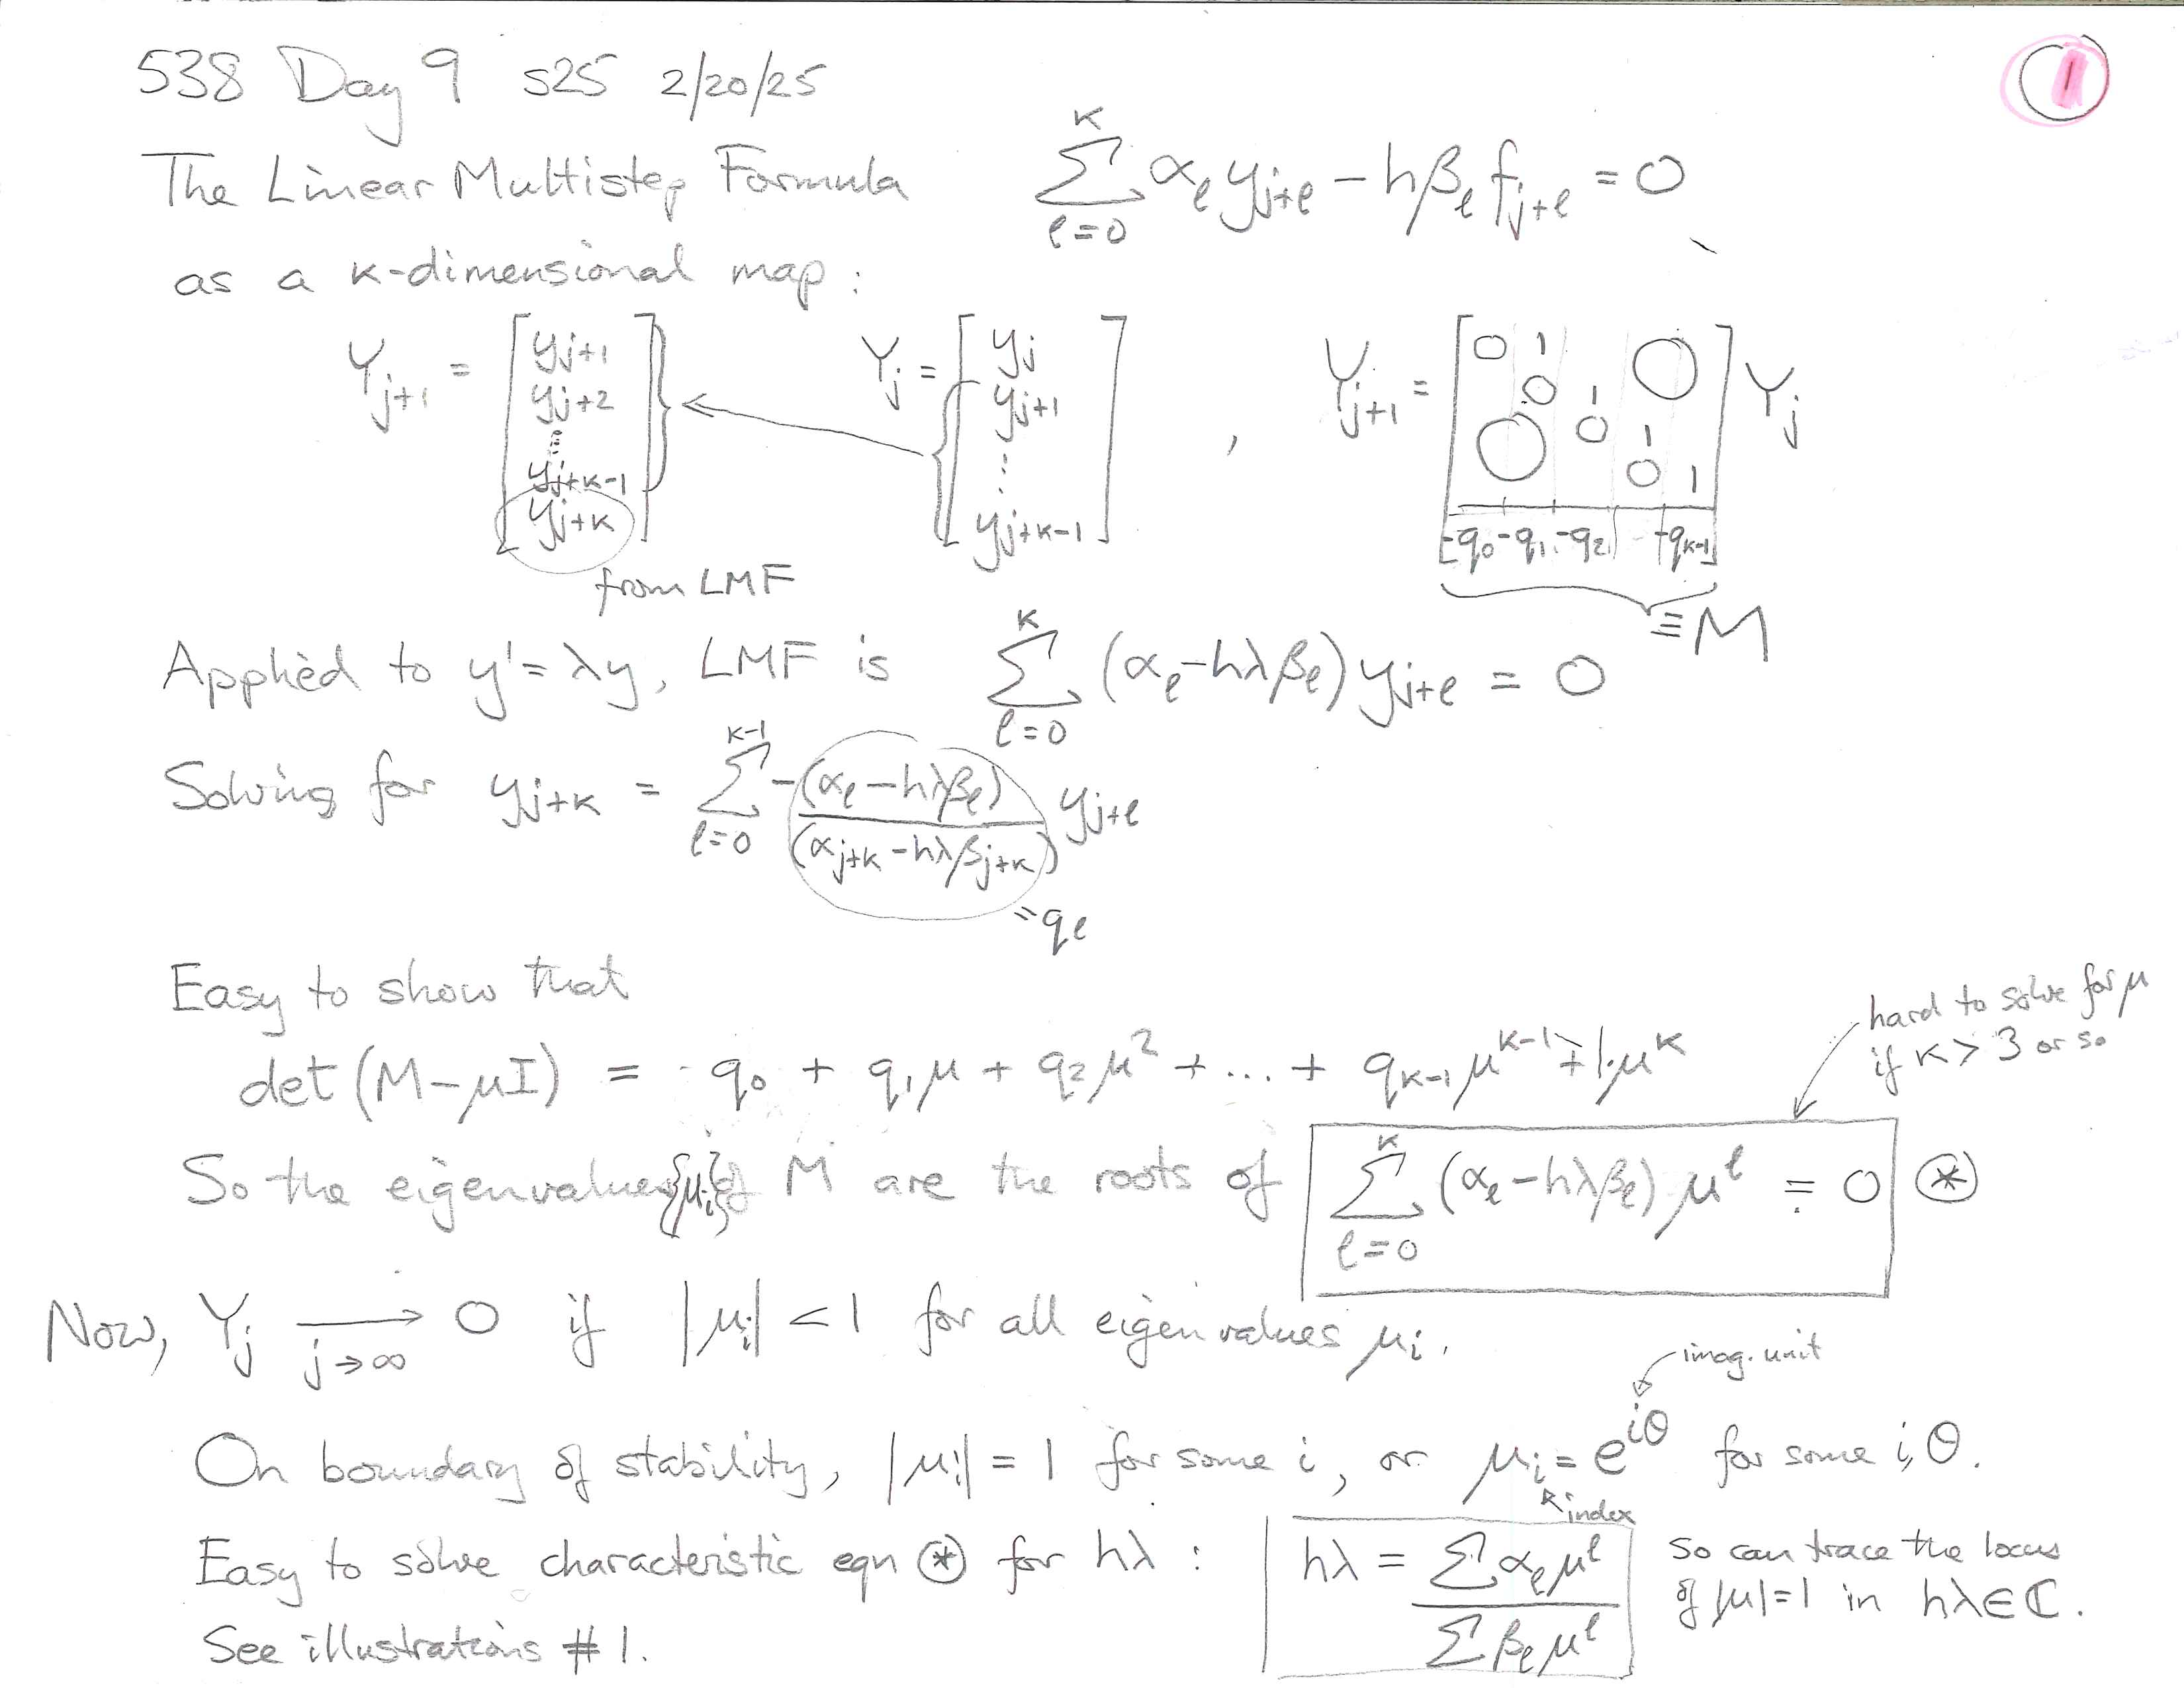 538 Day 9 S25 2/20/25
1
The Linear Multistep Formula \sum_{ℓ=0}^{K} α_ℓ y_{j+ℓ} - hβ_ℓ f_{j+ℓ} = 0
as a K-dimensional map:
Y_{j+1} = [y_{j+1} y_{j+2} ⋮ y_{j+K-1} y_{j+K}] Y_j = [y_j y_{j+1} ⋮ y_{j+K-1}] , Y_{j+1} = [0 1 0 0 1 0 0 1 0 1 -q_0 -q_1 -q_2 -q_{K-1}] Y_j
from LMF
≡ M
Applied to y' = λy, LMF is \sum_{ℓ=0}^{K} (α_ℓ - hλβ_ℓ) y_{j+ℓ} = 0
Solving for y_{j+K} = \sum_{ℓ=0}^{K-1} -\frac{(α_ℓ - hλβ_ℓ)}{(α_{j+K} - hλβ_{j+K})} y_{j+ℓ}
= q_ℓ
Easy to show that
hard to solve for μ
if K > 3 or so
det(M - μI) = q_0 + q_1 μ + q_2 μ^2 + ... + q_{K-1} μ^{K-1} + 1·μ^K
So the eigenvalues {μ_i} of M are the roots of \sum_{ℓ=0}^{K} (α_ℓ - hλβ_ℓ) μ^ℓ = 0 ⊛
Now, Y_j \xrightarrow[j→∞]{} 0 if |μ_i| < 1 for all eigenvalues μ_i.
imag. unit
On boundary of stability, |μ_i| = 1 for some i, or μ_i = e^{iθ} for some i, θ.
index
Easy to solve characteristic eqn ⊛ for hλ : hλ = \frac{\sum α_ℓ μ^ℓ}{\sum β_ℓ μ^ℓ} so can trace the locus
of |μ|=1 in hλ∈ℂ.
See illustrations #1.